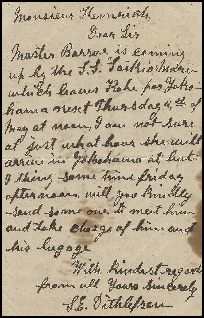 Monsieur
Dear Sir
Master Barrow is coming
up by the S.S. Saikio Maru
which leaves Kobe for Yoko-
hama next Thursday 4th of
May at noon, I am not sure
at just what hour she will
arrive in Yokohama at but
I thing some time friday
afternoon will you kindly
send some one to meet him
and take charge of him and
his lugage
With kindest regards
from all Yours Sincerely
S.E.